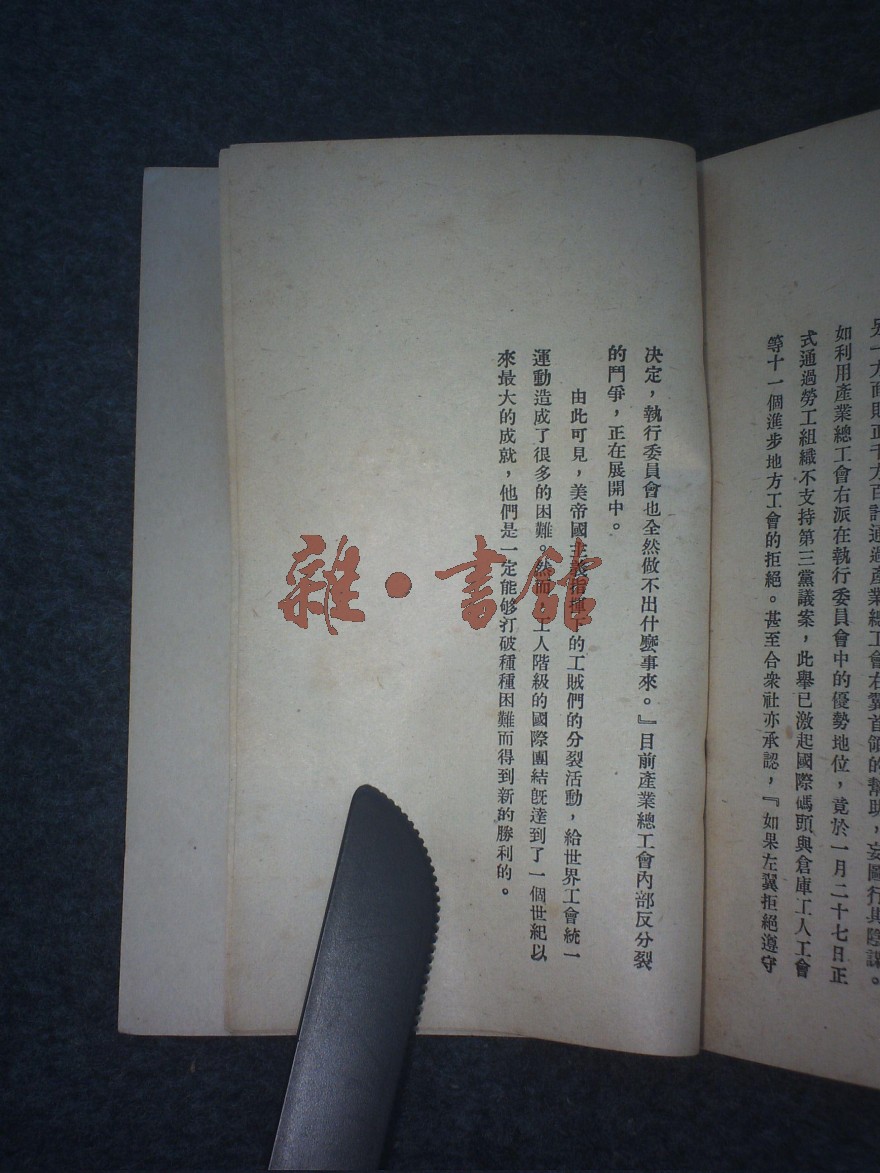 另一方面則正千方百計通過產業總工會右翼首領的幫助，妄圖行其陰謀。
如利用產業總工會右派在執行委員會中的優勢地位，竟於一月二十七日正
式通過勞工組織不支持第三黨議案，此舉已激起國際碼頭與倉庫工人工會
等十一個進步地方工會的拒絕。甚至合衆社亦承認，『如果左翼拒絕遵守
决定，執行委員會也全然做不出什麼事來。』目前產業總工會內部反分裂
的鬥爭，正在展開中。
由此可見，美帝國主義指揮下的工賊們的分裂活動，給世界工會統一
運動造成了很多的困難。然而，工人階級的國際團結旣達到了一個世紀以
來最大的成就，他們是一定能够打破種種困難而得到新的勝利的。
雜·書館